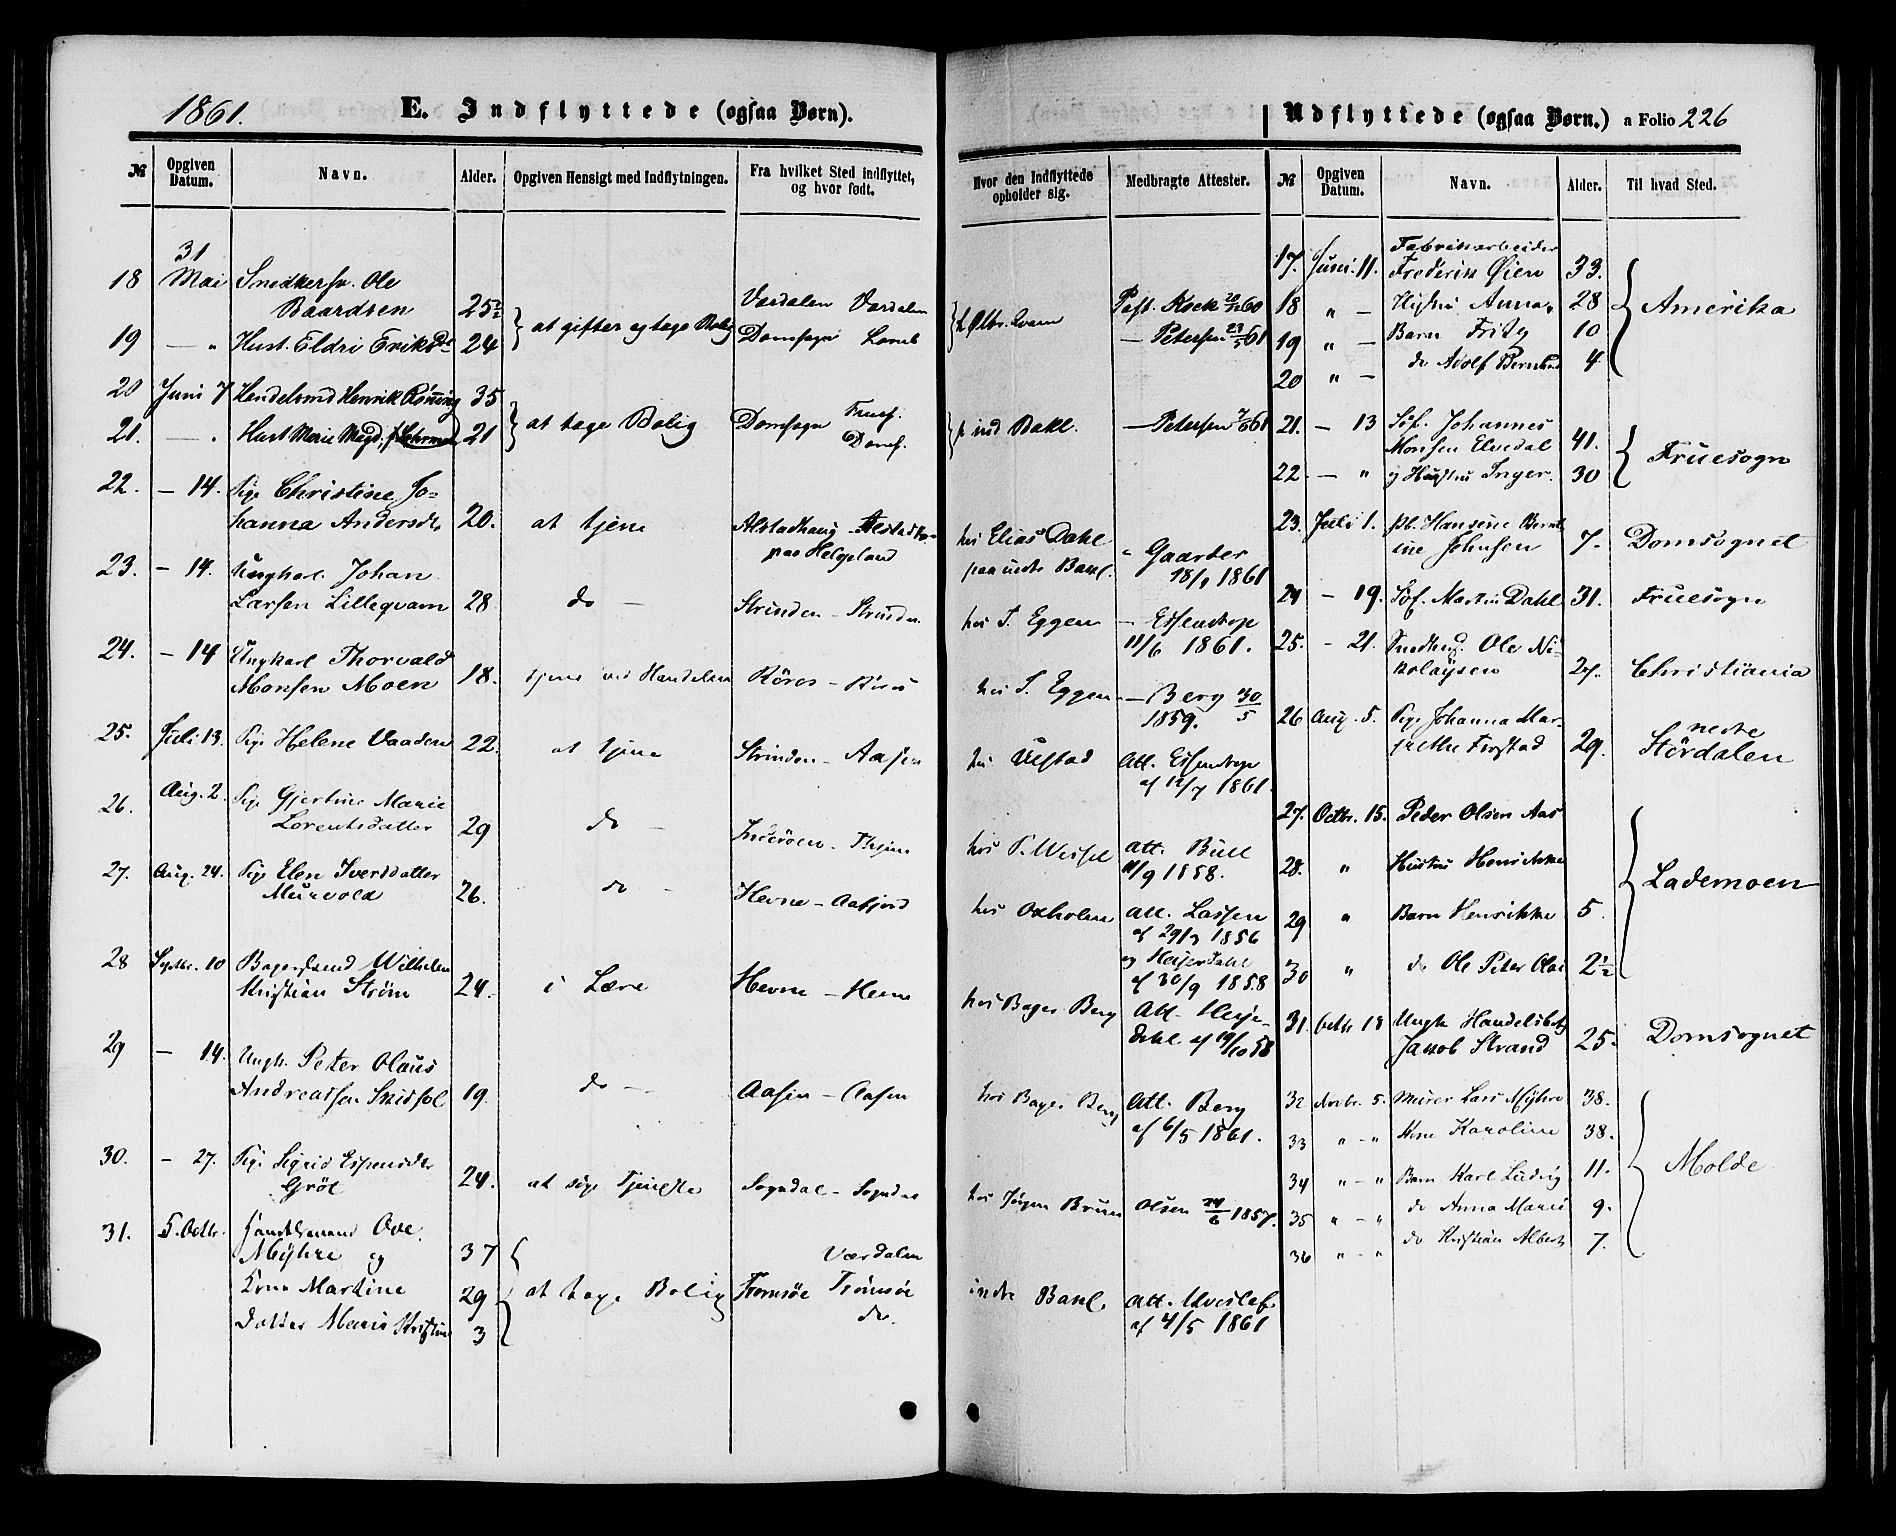 1861. E. Indflyttede (ogsaa Børn).
№ Opgiven Datum. Navn. Alder. Opgiven Hensigt med Indflytningen. Fra hvilket Sted indflyttet, og hvor født.
31
18 Mai Snedkersv. Ole
Baardsen 25½ Værdalen Værdalen
19 — " Hust. Eldri Eriksdt 24 at gifte og tage Bolig Domsogn Lomb
20 Juni 7 Handelsmd Henrik Rönning 35
21. — " Hust Marie Magd. f. 21 at tage Bolig Domsogn Fruesf. Domsf.
22. — 14. Pige Christine Jo-
hanna Andersdtr 20. at tjene Alstadhaug - Alstadh.
paa Helgeland
23. — 14. Ungkarl Johan
Larsen Lilleqvam 28. do — Strinden - Strinden
24. — 14 Ungkarl Thorvald
Monsen Moen 18. tjene ved Handelen Röros - Röros
25. Juli 13. Pige Helene Vaaden 22. at tjene Strinden - Aasen
26. Aug. 2. Pige Gjertine Marie
Lorentsdatter 29 do — Inderöen -
27. Aug. 24. Pige Elen Iversdatter
Murvold 26. do — Hevne - Aafjord
28 Septbr. 10 Bagersvend Wilhelm
Kristian Ström 24. i Lære Hevne - Hevne
29 — 14. Ungk. Peter Olaus
Andreassen 19. do — Aasen - Aasen
30. — 27. Pige Sigrid Espensdtr
Gröt 24. at söge Tjeneste Sogndal - Sogndal
31. 5. Octbr. Handelsmand Ove
Myhre og 37 Værdalen
Kone Martine 29 at tage Bolig Tromsöe Tromsöe
Datter Marie Kristine 3 do.
Udflyttede (ogsaa Børn.) a Folio 226
Hvor den Indflyttede opholder sig. Medbragte Attester. № Opgiven Datum. Navn. Alder. Til hvad Sted.
Fabrikarbeider
17. Juni 11. Frederik Øien 33.
Past. Kock 60 18 " — Hustru Anna 28 Amerika
— Petersen 23/5 61 19 " — Barn Fritz 10
20 " — do Adolf Bernhard 4
ind Bakl. — Petersen 7/6 61 21. — 13 Söf. Johannes
Monsen Elvedal 41.
22. — " og Hustru Inger. 30 Fruesogn
hos Elias Dahl 23. Juli 1. pb. Hansine Bernt-
paa indr. Bakl. " Gaarder ine Johnsen 7. Domsognet
18/1 1861
24 — 19. Söf. Martin Dahl 31. Fruesogn
hos T. Eggen — Essendrop
11/6 1861. 25. — 21. Snedksv. Ole Ni-
kolaysen 27. Christiania
hos T. Eggen — Berg 30/5
1859. 26 Aug. 5. Pige Johanna Mar-
grethe Forstad 29. nedre Stördalen
hos Vestad Att. Essendrop
af 12/7 1861.
27. Octbr. 15. Peder Olsen Aas
hos P. Wessel Att. Bull
11/9 1858. 28. " Hustru Henrikke
hos Oxholm Att. Lassen 29 " Barn Henrikke 5. Lademoen
af 29/3 1856
og Heyerdahl
af 30/9 1858 30 " do Ole Peter Olai 2½
hos Bager Berg Att. Heyer-
dahl af 19/10 58 31. Octbr 18 Ungk. Handelsbetj.
Jakob Strand 25. Domsognet
hos Bager Berg Att. Berg 32 Novbr. 5. Murer Lars Myhre 38.
af 6/5 1861. 33 " — " Kone Karoline 38.
34 " — " Barn Karl Ludvig 11. Molde
hos Jörgen Bruun Olsen 24/6 1857. 35 " — " do Anna Marie 9.
36 " — " do Kristian Albert 7.
indre Bakl. Att. Kverslef
af 4/5 1861